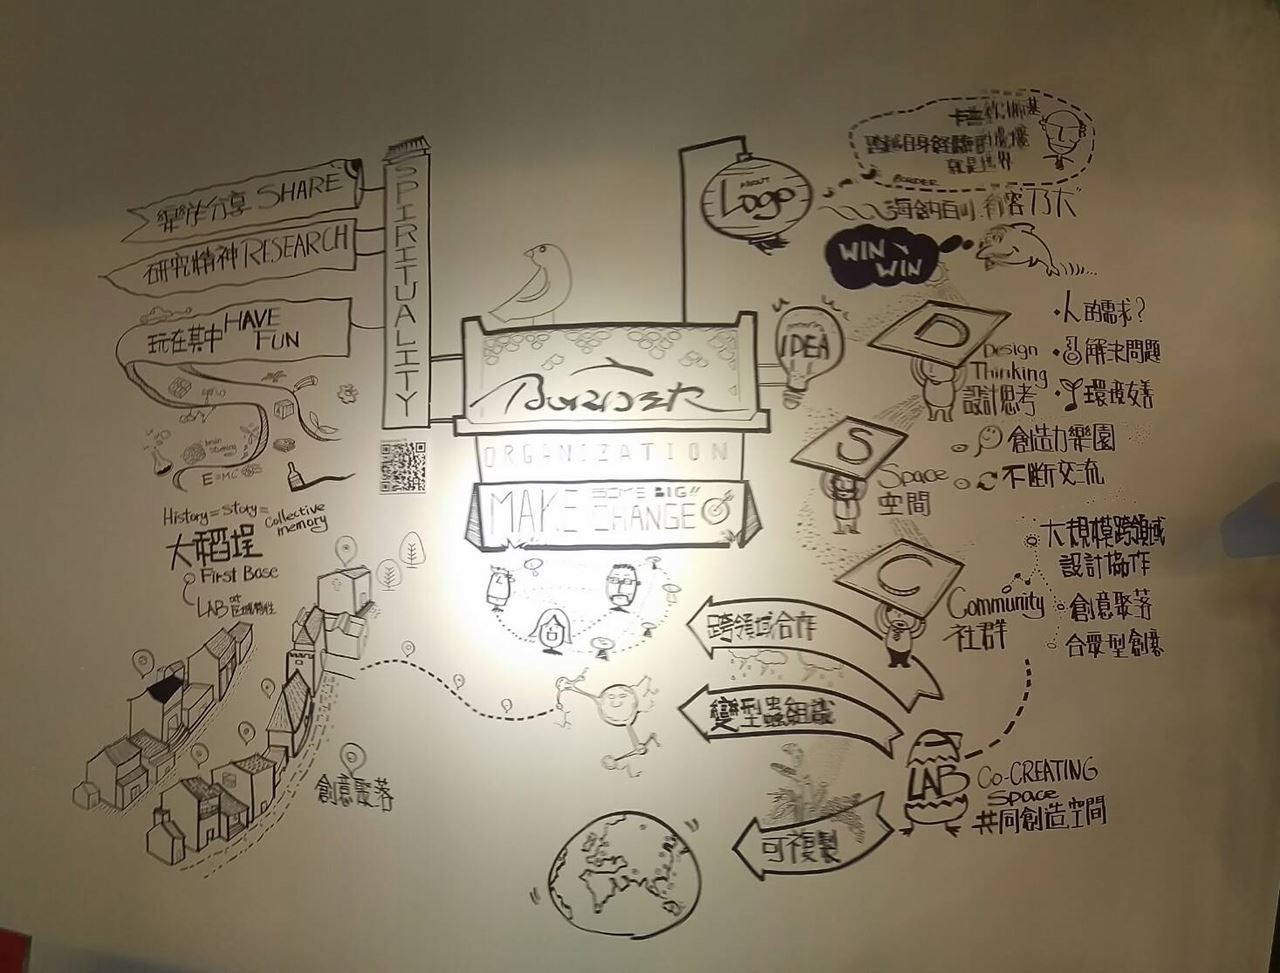 樂於分享 SHARE
研究精神 RESEARCH
玩在其中 HAVE
FUN
SPIRITUALITY
brain
storming
E=MC
History=Story=Collective
memory
大稻埕
First Base
LAB
創意聚落
BORDER
ORGANIZATION
MAKE SOME BIG!!
CHANGE
ABOUT
Logo
就是世界
BORDER
海納百川 有容乃大
WIN
WIN
IDEA
D
Design
Thinking
設計思考
人的需求?
解決問題
環境友善
S
Space
空間
創造力樂園
不斷交流
C
Community
社群
大規模跨領域
設計協作
創意聚落
合眾型創意
跨領域合作
變型蟲組織
可複製
LAB
CO-CREATING
Space
共同創造空間